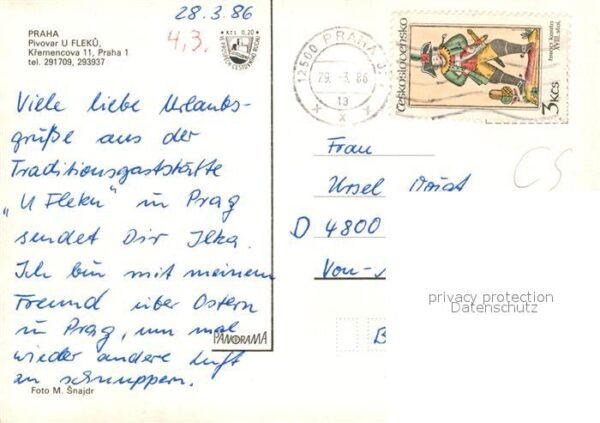 28.3.86
4,3.
PRAHA
Pivovar U FLEKŮ,
Křemencova 11, Praha 1
tel. 291709, 293937
Kčs 0,20
12500 PRAHA
29. -3. 86
13
x x x
československo
3 Kčs
Viele liebe Urlaubs-
grüße aus der
Traditionsgaststätte
„U Fleku" in Prag
sendet Dir Ilka.
Ich bin mit meinem
Freund über Ostern
in Prag, um mal
wieder andere Luft
zu schnuppern.
Frau
Ursel
D 4800
Von-
B
CS
PANORAMA
Foto M. Šnajdr
privacy protection
Datenschutz